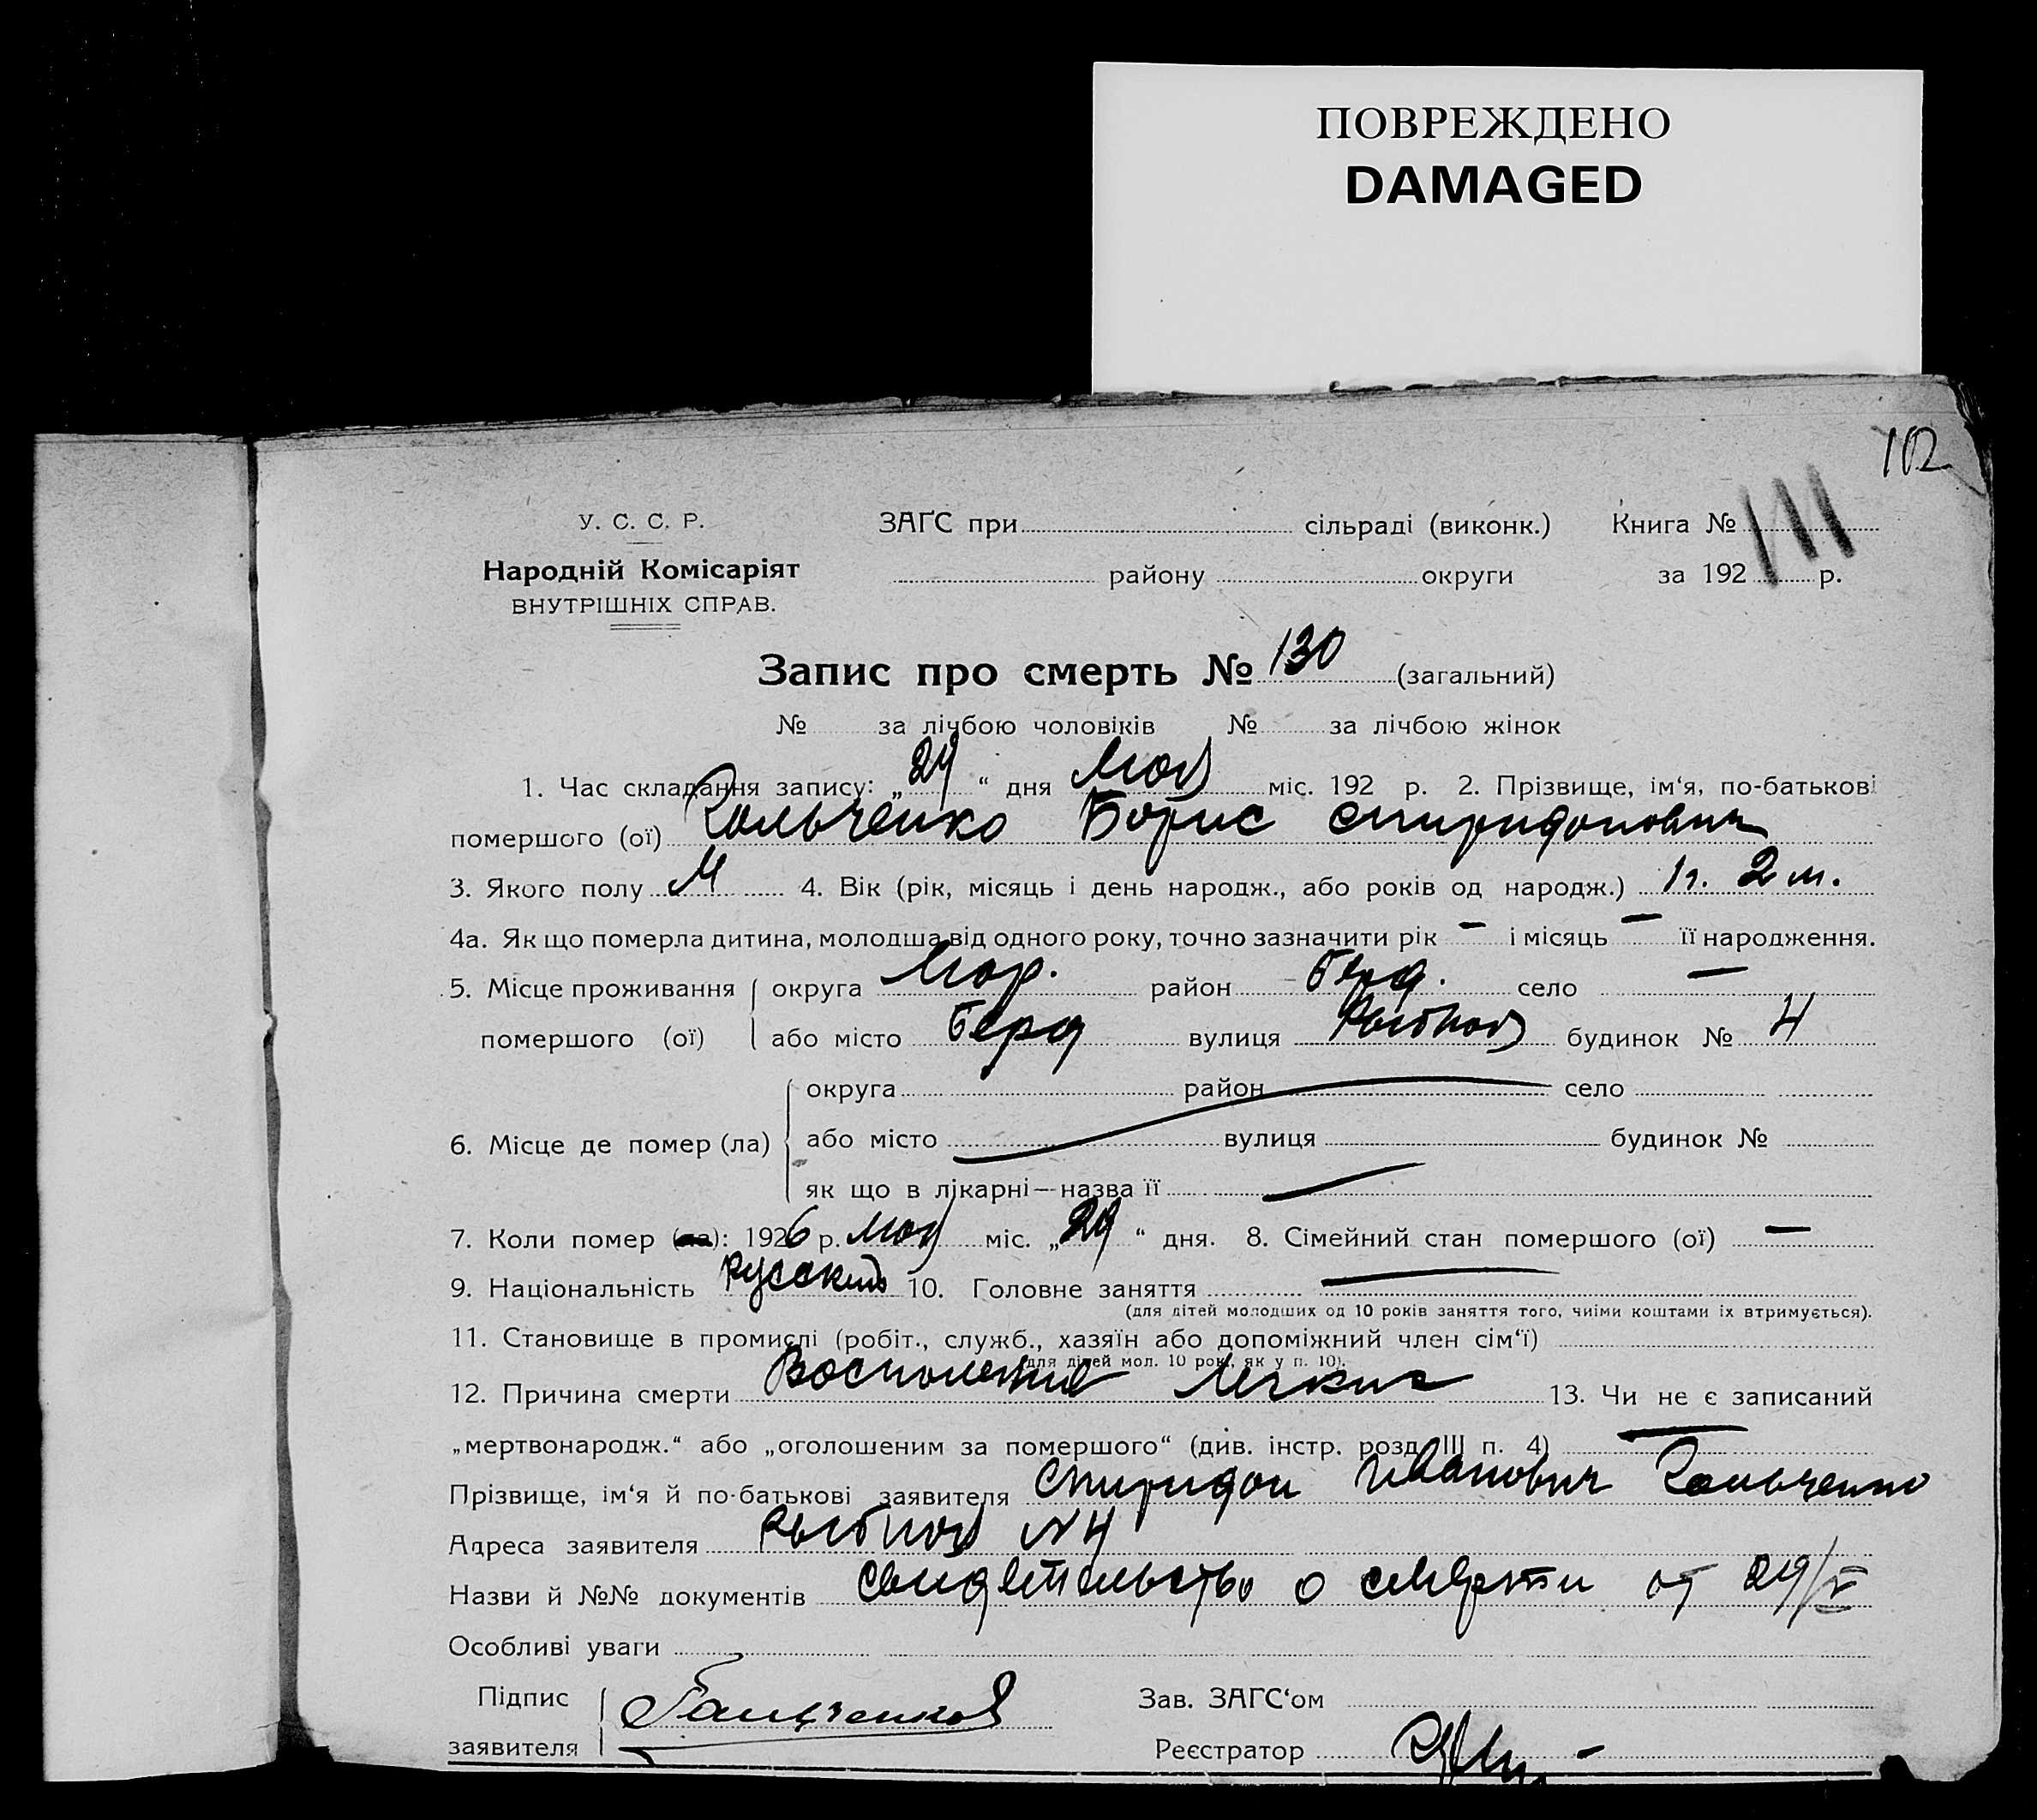 ПОВРЕЖДЕНО
DAMAGED
102
У. С. С. Р.
ЗАГС при сільраді (виконк.) Книга №
Народній Комісаріят
району округи за 192 р.
ВНУТРІШНІХ СПРАВ.
Запис про смерть № 130 (загальний)
№ за лічбою чоловіків № за лічбою жінок
1. Час складання запису: „29“ дня Мая міс. 192 р. 2. Прізвище, ім‘я, по-батькові
помершого (ої) Гольченко Борис Спиридонович
3. Якого полу М 4. Вік (рік, місяць і день народж., або років од народж.) 1 г. 2 м.
4а. Як що померла дитина, молодша від одного року, точно зазначити рік — і місяць — її народження.
5. Місце проживання округа Мар. район Берд. село —
помершого (ої) або місто Берд вулиця будинок № 4
округа район село
6. Місце де помер (ла) або місто вулиця будинок №
як що в лікарні—назва її
7. Коли помер (ла): 1926 р. Мая міс. „29“ дня. 8. Сімейний стан помершого (ої) —
9. Національність Русский 10. Головне заняття —
(для дітей молодших од 10 років заняття того, чиїми коштами їх втримується).
11. Становище в промислі (робіт., служб., хазяїн або допоміжний член сім‘ї)
(для дітей мол. 10 рок., як у п. 10).
12. Причина смерти Воспаление Легких 13. Чи не є записаний
„мертвонародж.“ або „оголошеним за помершого“ (див. інстр. розд. III п. 4) —
Прізвище, ім‘я й по-батькові заявителя Спиридон Иванович Гольченко
Адреса заявителя №4
Назви й №№ документів свидетельство о смерти от 29/V
Особливі уваги
Підпис Зав. ЗАГС‘ом
заявителя Реєстратор